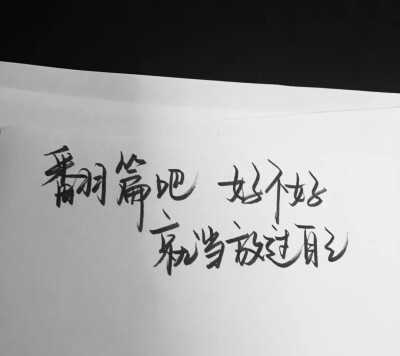 翻篇吧 好不好
就当放过自己